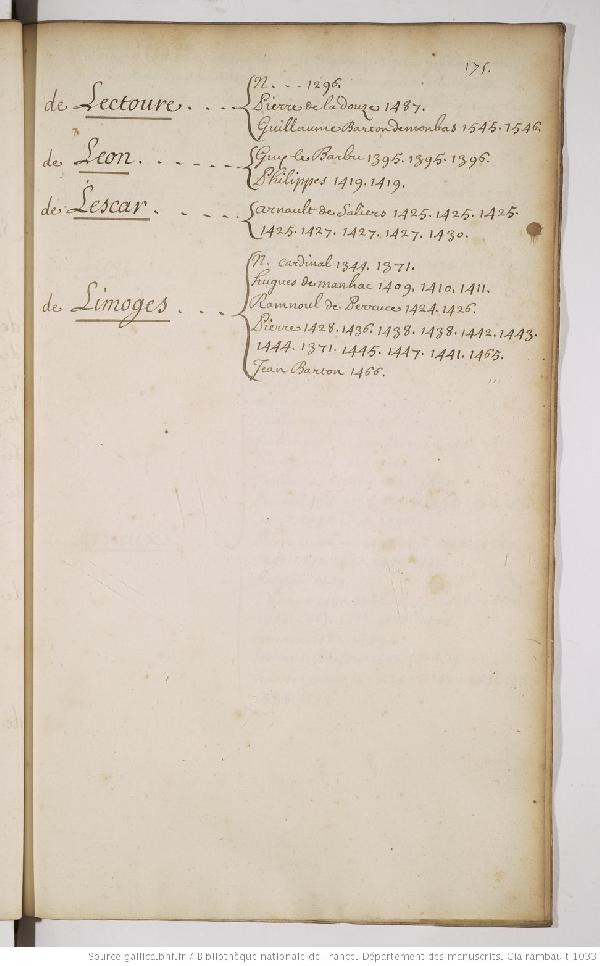 175.
N. . . . 1296.
de Lectoure. . . . Pierre de la Douze 1487.
Guillaume Barton de monbas 1545. 1546.
de Leon. . . . . . . Guy le Barbu 1395. 1395. 1396.
Philippes 1419. 1419.
de Lescar. . . . . . arnault de Saliers 1425. 1425. 1425.
1425. 1427. 1427. 1427. 1430.
N. cardinal 1344. 1371.
hugues de manhac 1409. 1410. 1411.
de Limoges . . . Ramnoul de Perruce 1424. 1426.
Pierre 1428. 1436. 1438. 1438. 1442. 1443.
1444. 1371. 1445. 1447. 1441. 1465.
Jean Barton 1466.
Source gallica.bnf.fr / Bibliothèque nationale de France. Département des manuscrits. Clairambault 1033